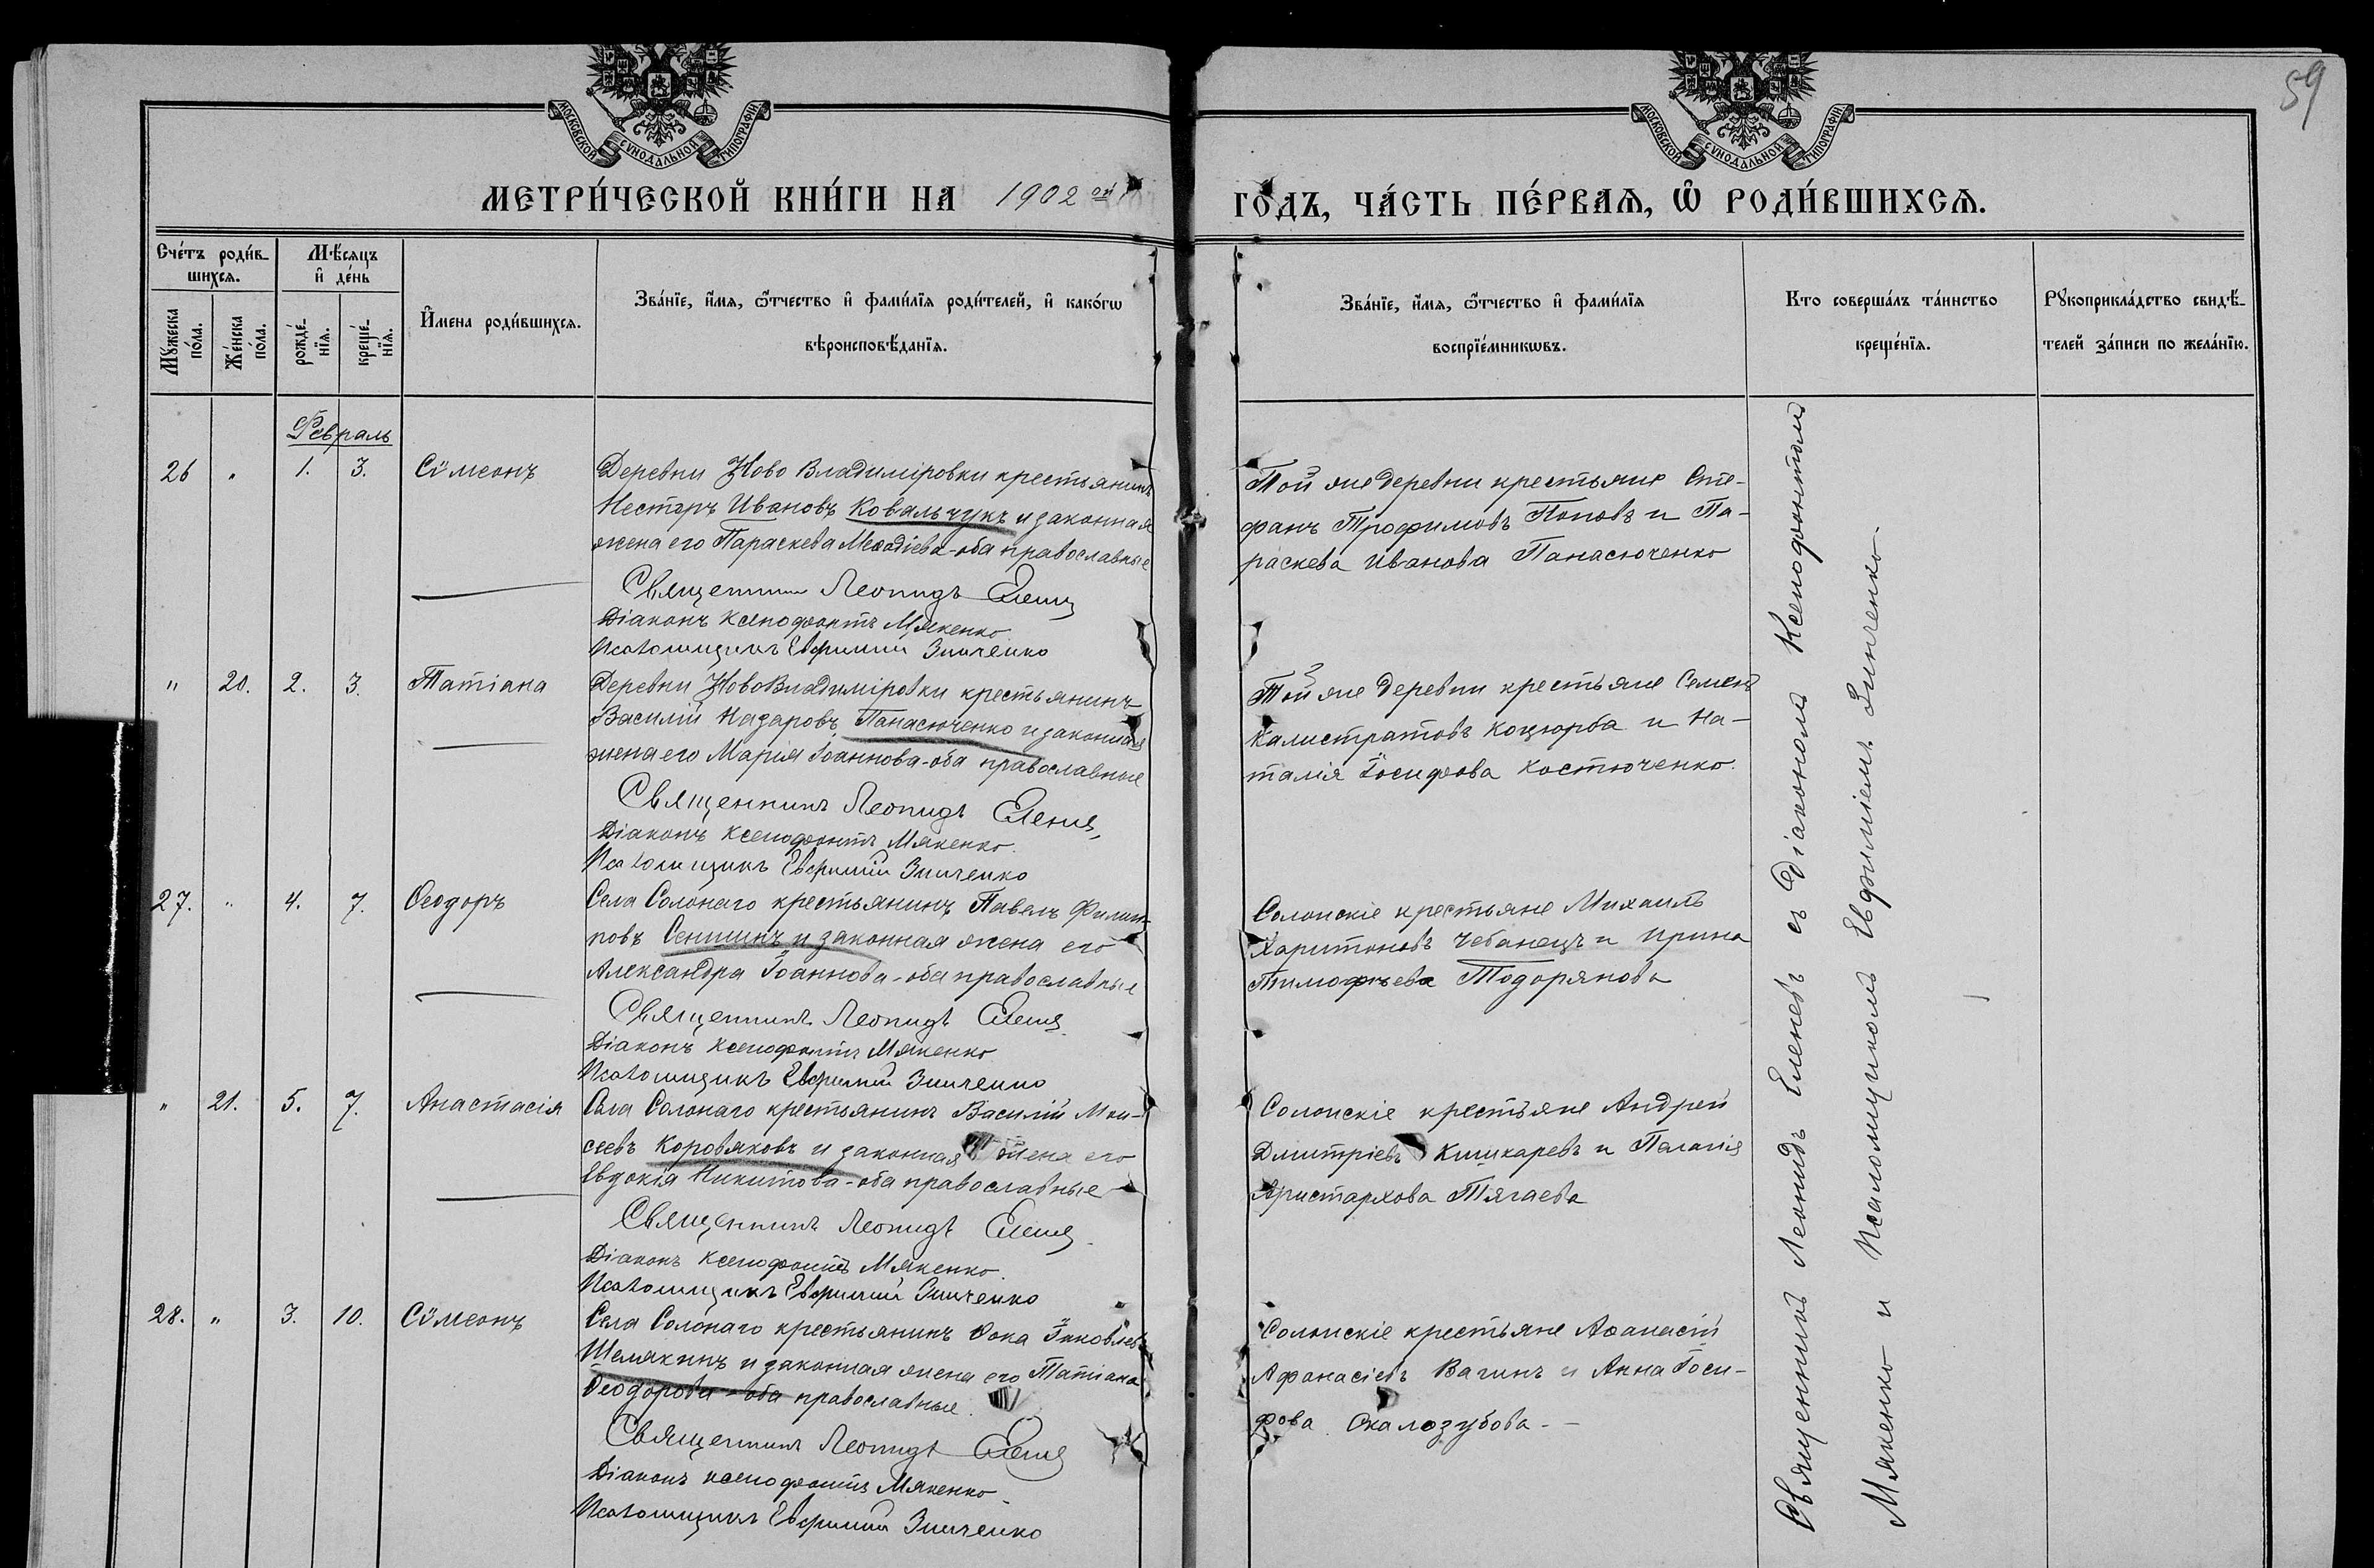 59
МОСКОВСКОЙ СУНОДАЛЬНОЙ ТИПОГРАФІИ
МОСКОВСКОЙ СУНОДАЛЬНОЙ ТИПОГРАФІИ
МЕТРИ́ЧЕСКОЙ КНИ́ГИ НА 1902 ой
ГО́ДЪ, ЧА́СТЬ ПЕ́РВАЯ, Ѽ РОДИ́ВШИХСЯ.
Сче́тъ роди́в-
шихся.
Мѣ́сяцъ
и҆ де́нь
Мꙋ́жеска по́ла.
Же́нска по́ла.
рожде́-
нїя.
креще́-
нїя.
И҆мена роди́вшихся.
Зва́нїе, и҆́мя, ѻ҆́тчество и҆ фами́лїя роди́телей, и҆ како́гѡ
вѣроисповѣ́данїя.
Зва́нїе, и҆́мя, ѻ҆́тчество и҆ фами́лїя
воспрїе́мникѡвъ.
Кто соверша́лъ та́инство
креще́нїя.
Рꙋкоприкла́дство свидѣ́-
телей за́писи по жела́нїю.
Февраль
26 " 1. 3. Сѵмеонъ
Деревни Ново Владиміровки крестьянинъ
Несторъ Ивановъ Ковальчукъ и законная
жена его Параскева Меѳодіева - оба православные
Священникъ Леонидъ Еленевъ
Діаконъ Ксенофонтъ Мякенко
Псаломщикъ Евфимій Зинченко
Той же деревни крестьяне Сте-
фанъ Трофимовъ Поповъ и Па-
раскева Иванова Панасюченко
" 20. 2. 3. Татіана
Деревни НовоВладиміровки крестьянинъ
Василій Назаровъ Панасюченко и законная
жена его Марія Іоаннова - оба православные
Священникъ Леонидъ Еленевъ
Діаконъ Ксенофонтъ Мякенко.
Псаломщикъ Евфимій Зинченко
Той же деревни крестьяне Семенъ
Калистратовъ Коцюрба и На-
талія Іосифова Костюченко.
27. " 4. 7. Ѳеодоръ
Села Солонаго крестьянинъ Павелъ Филип-
повъ Сенишинъ и законная жена его
Александра Іоаннова - оба православные
Священникъ Леонидъ Еленевъ
Діаконъ Ксенофонтъ Мякенко
Псаломщикъ Евфимій Зинченко
Солонскіе крестьяне Михаилъ
Харитоновъ Чебанецъ и Ирина
Тимофѣева Тодорянова
" 21. 5. 7. Анастасія
Села Солонаго крестьянинъ Василій Мои-
сеевъ Коровяковъ и законная жена его
Евдокія Никитова - оба православные
Священникъ Леонидъ Еленевъ
Діаконъ Ксенофонтъ Мякенко.
Псаломщикъ Евфимій Зинченко
Солонскіе крестьяне Андрей
Дмитріевъ Кишкаревъ и Пелагія
Аристархова Тягаева
28. " 3. 10. Сѵмеонъ
Села Солонаго крестьянинъ Ѳока Іаковлевъ
Шемякинъ и законная жена его Татіана
Ѳеодорова - оба православные.
Священникъ Леонидъ Еленевъ
Діаконъ Ксенофонтъ Мякенко
Псаломщикъ Евфимій Зинченко
Солонскіе крестьяне Аѳанасій
Афанасіевъ Вагинъ и Анна Іоси-
фова Скалозубова. -
Священникъ Леонидъ Еленевъ съ Діакономъ Ксенофонтомъ
Мякенко и Псаломщикомъ Евфиміемъ Зинченко.